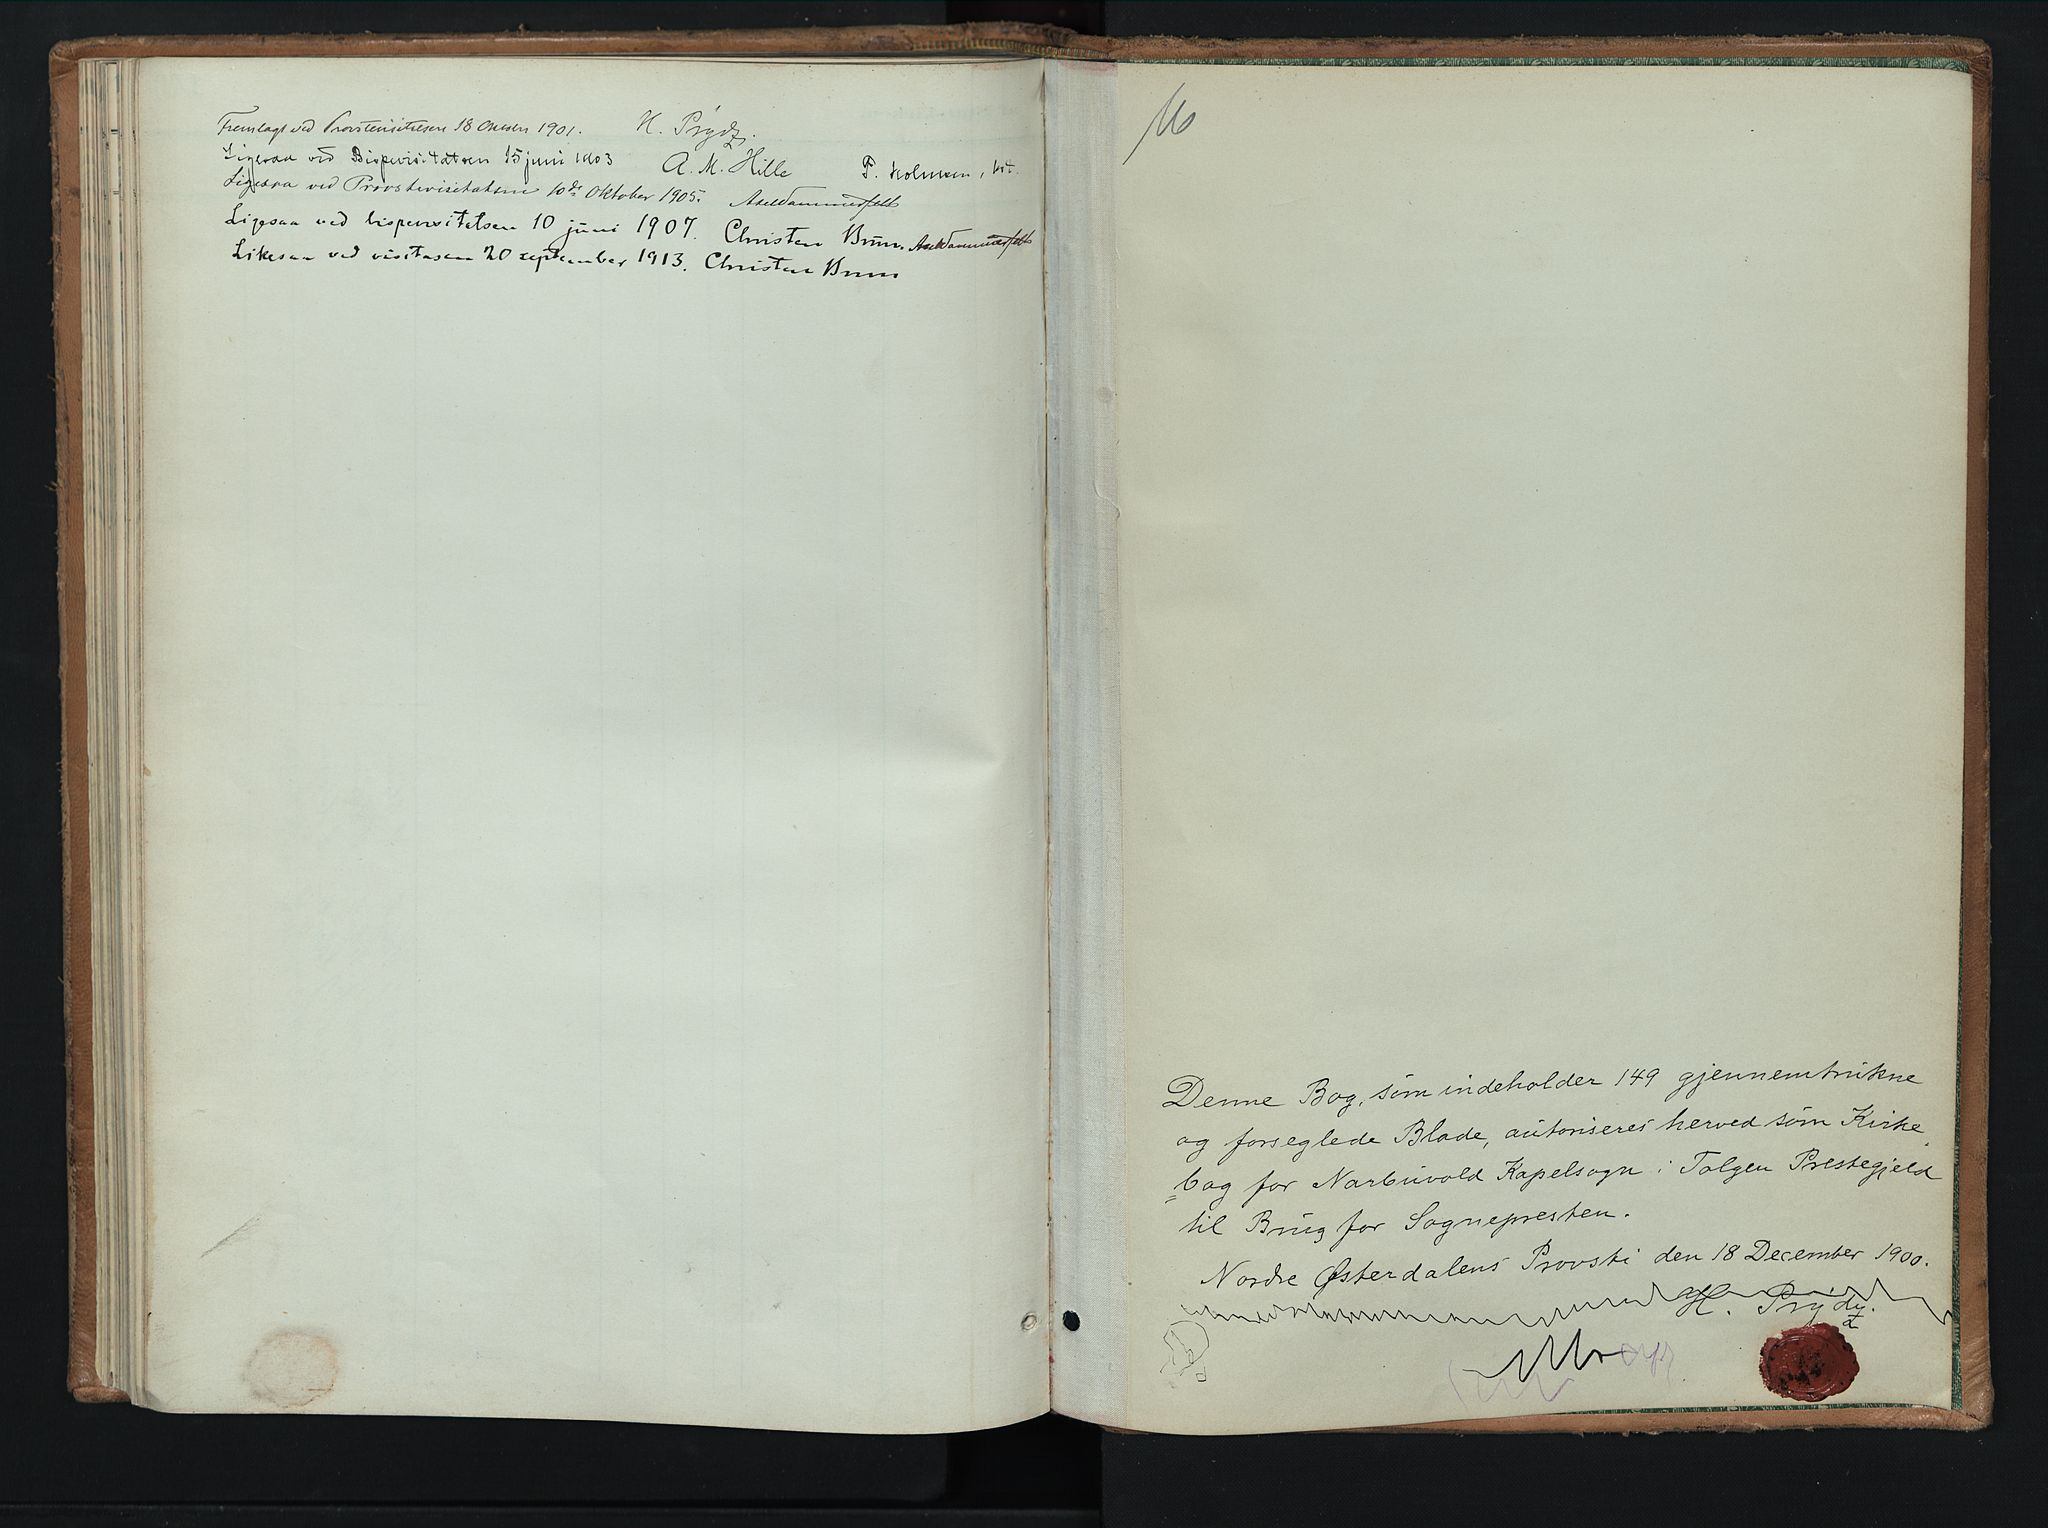 Fremlagt ved Provstevisitatsen 18 Oktober 1901. H. Prydz.
Ligesaa ved Bispevisitatsen 15 juni 1903 A. M. Hille F. Holmsen,
Ligesaa ved Provstevisitatsen 10de Oktober 1905. Axel Dammersfelt
Ligesaa ved bispevisitatsen 10 juni 1907. Christen Brun. Axel Dammersfelt
Likesaa ved visitasen 20 september 1913. Christen Brun
Denne Bog, som indeholder 149 gjennemtrukne
og forseglede Blade, autoriseres herved som Kirke
=bog for Narbuvold Kapelsogn i Tolgen Prestegjeld
til Brug for Sognepresten.
Nordre Østerdalens Provsti den 18 December 1900.
H. Prydz.